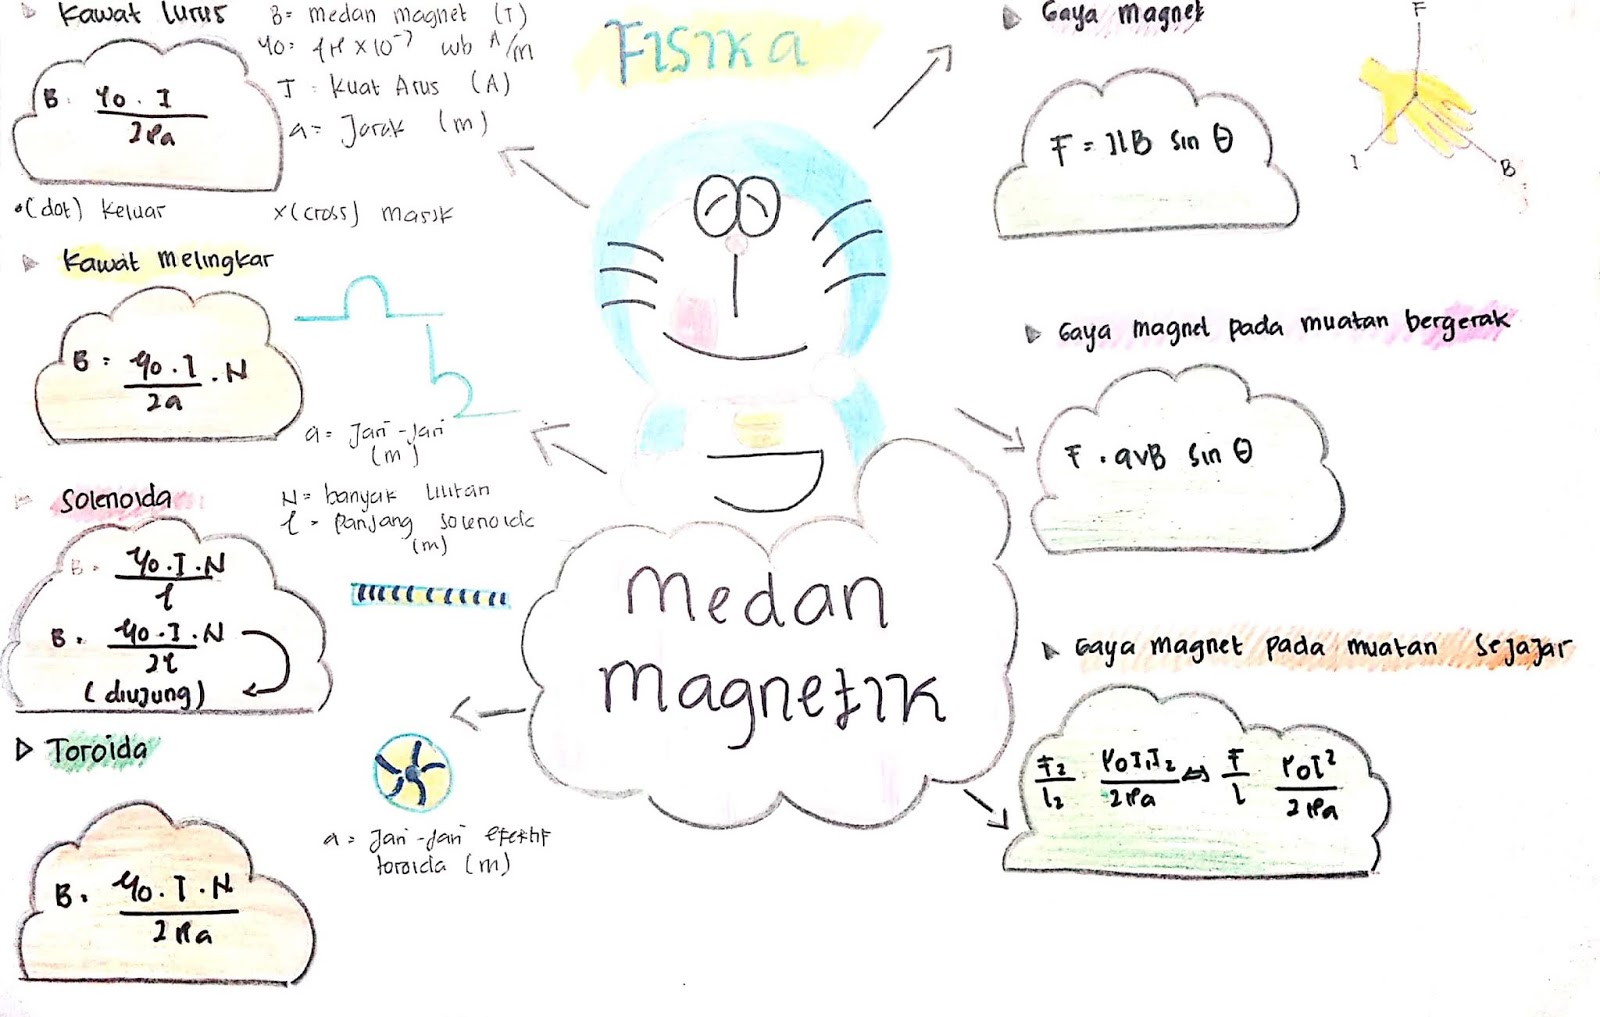 Fisika
Medan
Magnetik
Kawat lurus
B = μo . I
2πa
B = medan magnet (T)
μo = 4π × 10⁻⁷ wb A/m
I = Kuat Arus (A)
a = Jarak (m)
•(dot) keluar
×(cross) masuk
Kawat melingkar
B = μo . I . N
2a
a = Jari-Jari
(m)
Solenoida
B = μo . I . N
l
B = μo . I . N
2l
(diujung)
N = banyak lilitan
l = panjang solenoida
(m)
Toroida
B = μo . I . N
2πa
a = Jari-Jari efektif
toroida (m)
Gaya magnet
F = IlB sin θ
F
I
B
Gaya magnet pada muatan bergerak
F = qvB sin θ
Gaya magnet pada muatan sejajar
F2 μo I1 I2 ⇔ F μo I²
l2 2πa l 2πa